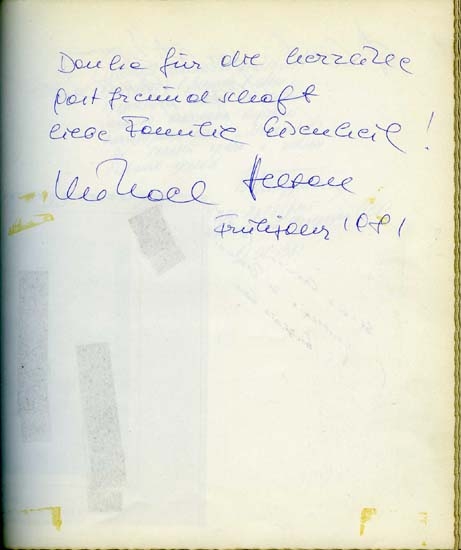 Danke für die herzliche
Gastfreundschaft
liebe Familie
Michael
Frühjahr 1981